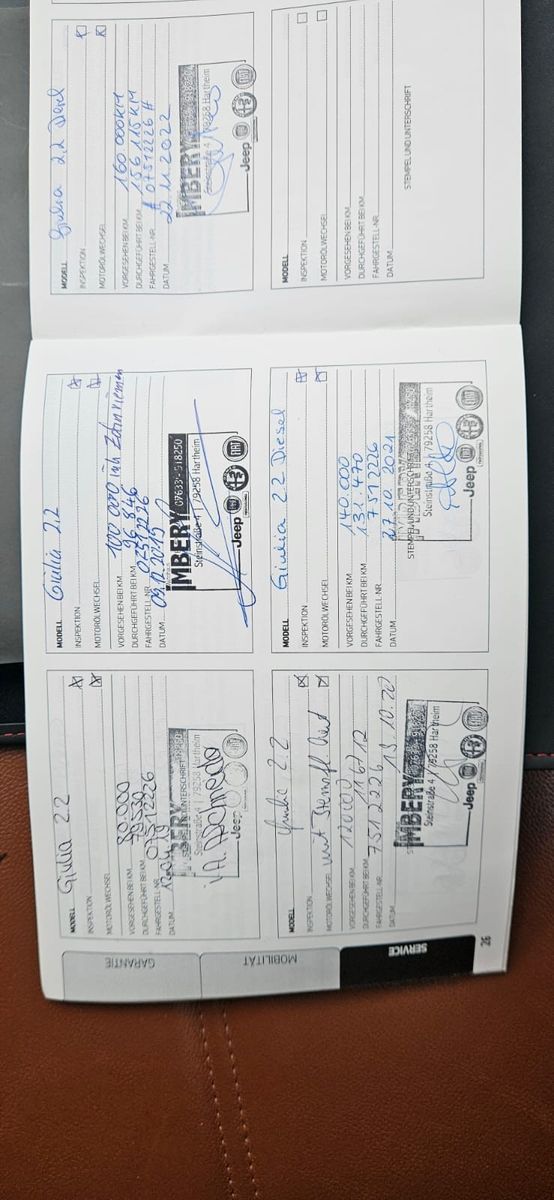 MODELL Giulia 2.2
INSPEKTION
MOTORÖLWECHSEL
VORGESEHEN BEI KM 80.000
DURCHGEFÜHRT BEI KM
FAHRGESTELL-NR. 07512226
DATUM
STEMPEL UND UNTERSCHRIFT
IMBERY
Steinstraße 4 | 79258 Hartheim
Jeep
MODELL Giulia 2.2
INSPEKTION
MOTORÖLWECHSEL
VORGESEHEN BEI KM 100 000 inh Zahnriemen
DURCHGEFÜHRT BEI KM 96 846
FAHRGESTELL-NR. 07512226
DATUM
IMBERY 07633-918250
Steinstraße 4 | 79258 Hartheim
Jeep FIAT
MODELL Giulia 2,2 Diesel
INSPEKTION
MOTORÖLWECHSEL
VORGESEHEN BEI KM 160 000KM
DURCHGEFÜHRT BEI KM 156 115 KM
FAHRGESTELL-NR. # 07512226 #
DATUM 22.11.2022
IMBERY
Steinstraße 4 | 79258 Hartheim
Jeep FIAT
MODELL Giulia 2.2
INSPEKTION
MOTORÖLWECHSEL
VORGESEHEN BEI KM 120000
DURCHGEFÜHRT BEI KM 116712
FAHRGESTELL-NR. 7512226
DATUM 13.10.20
IMBERY
Steinstraße 4 | 79258 Hartheim
Jeep FIAT
MODELL Giulia 2.2 Diesel
INSPEKTION
MOTORÖLWECHSEL
VORGESEHEN BEI KM 140.000
DURCHGEFÜHRT BEI KM 131.470
FAHRGESTELL-NR. 7512226
DATUM 27.10.2021
STEMPEL UND UNTERSCHRIFT
Steinstraße 4 | 79258 Hartheim
Jeep FIAT
MODELL
INSPEKTION
MOTORÖLWECHSEL
VORGESEHEN BEI KM
DURCHGEFÜHRT BEI KM
FAHRGESTELL-NR.
DATUM
STEMPEL UND UNTERSCHRIFT
GARANTIE
MOBILITÄT
SERVICE
26